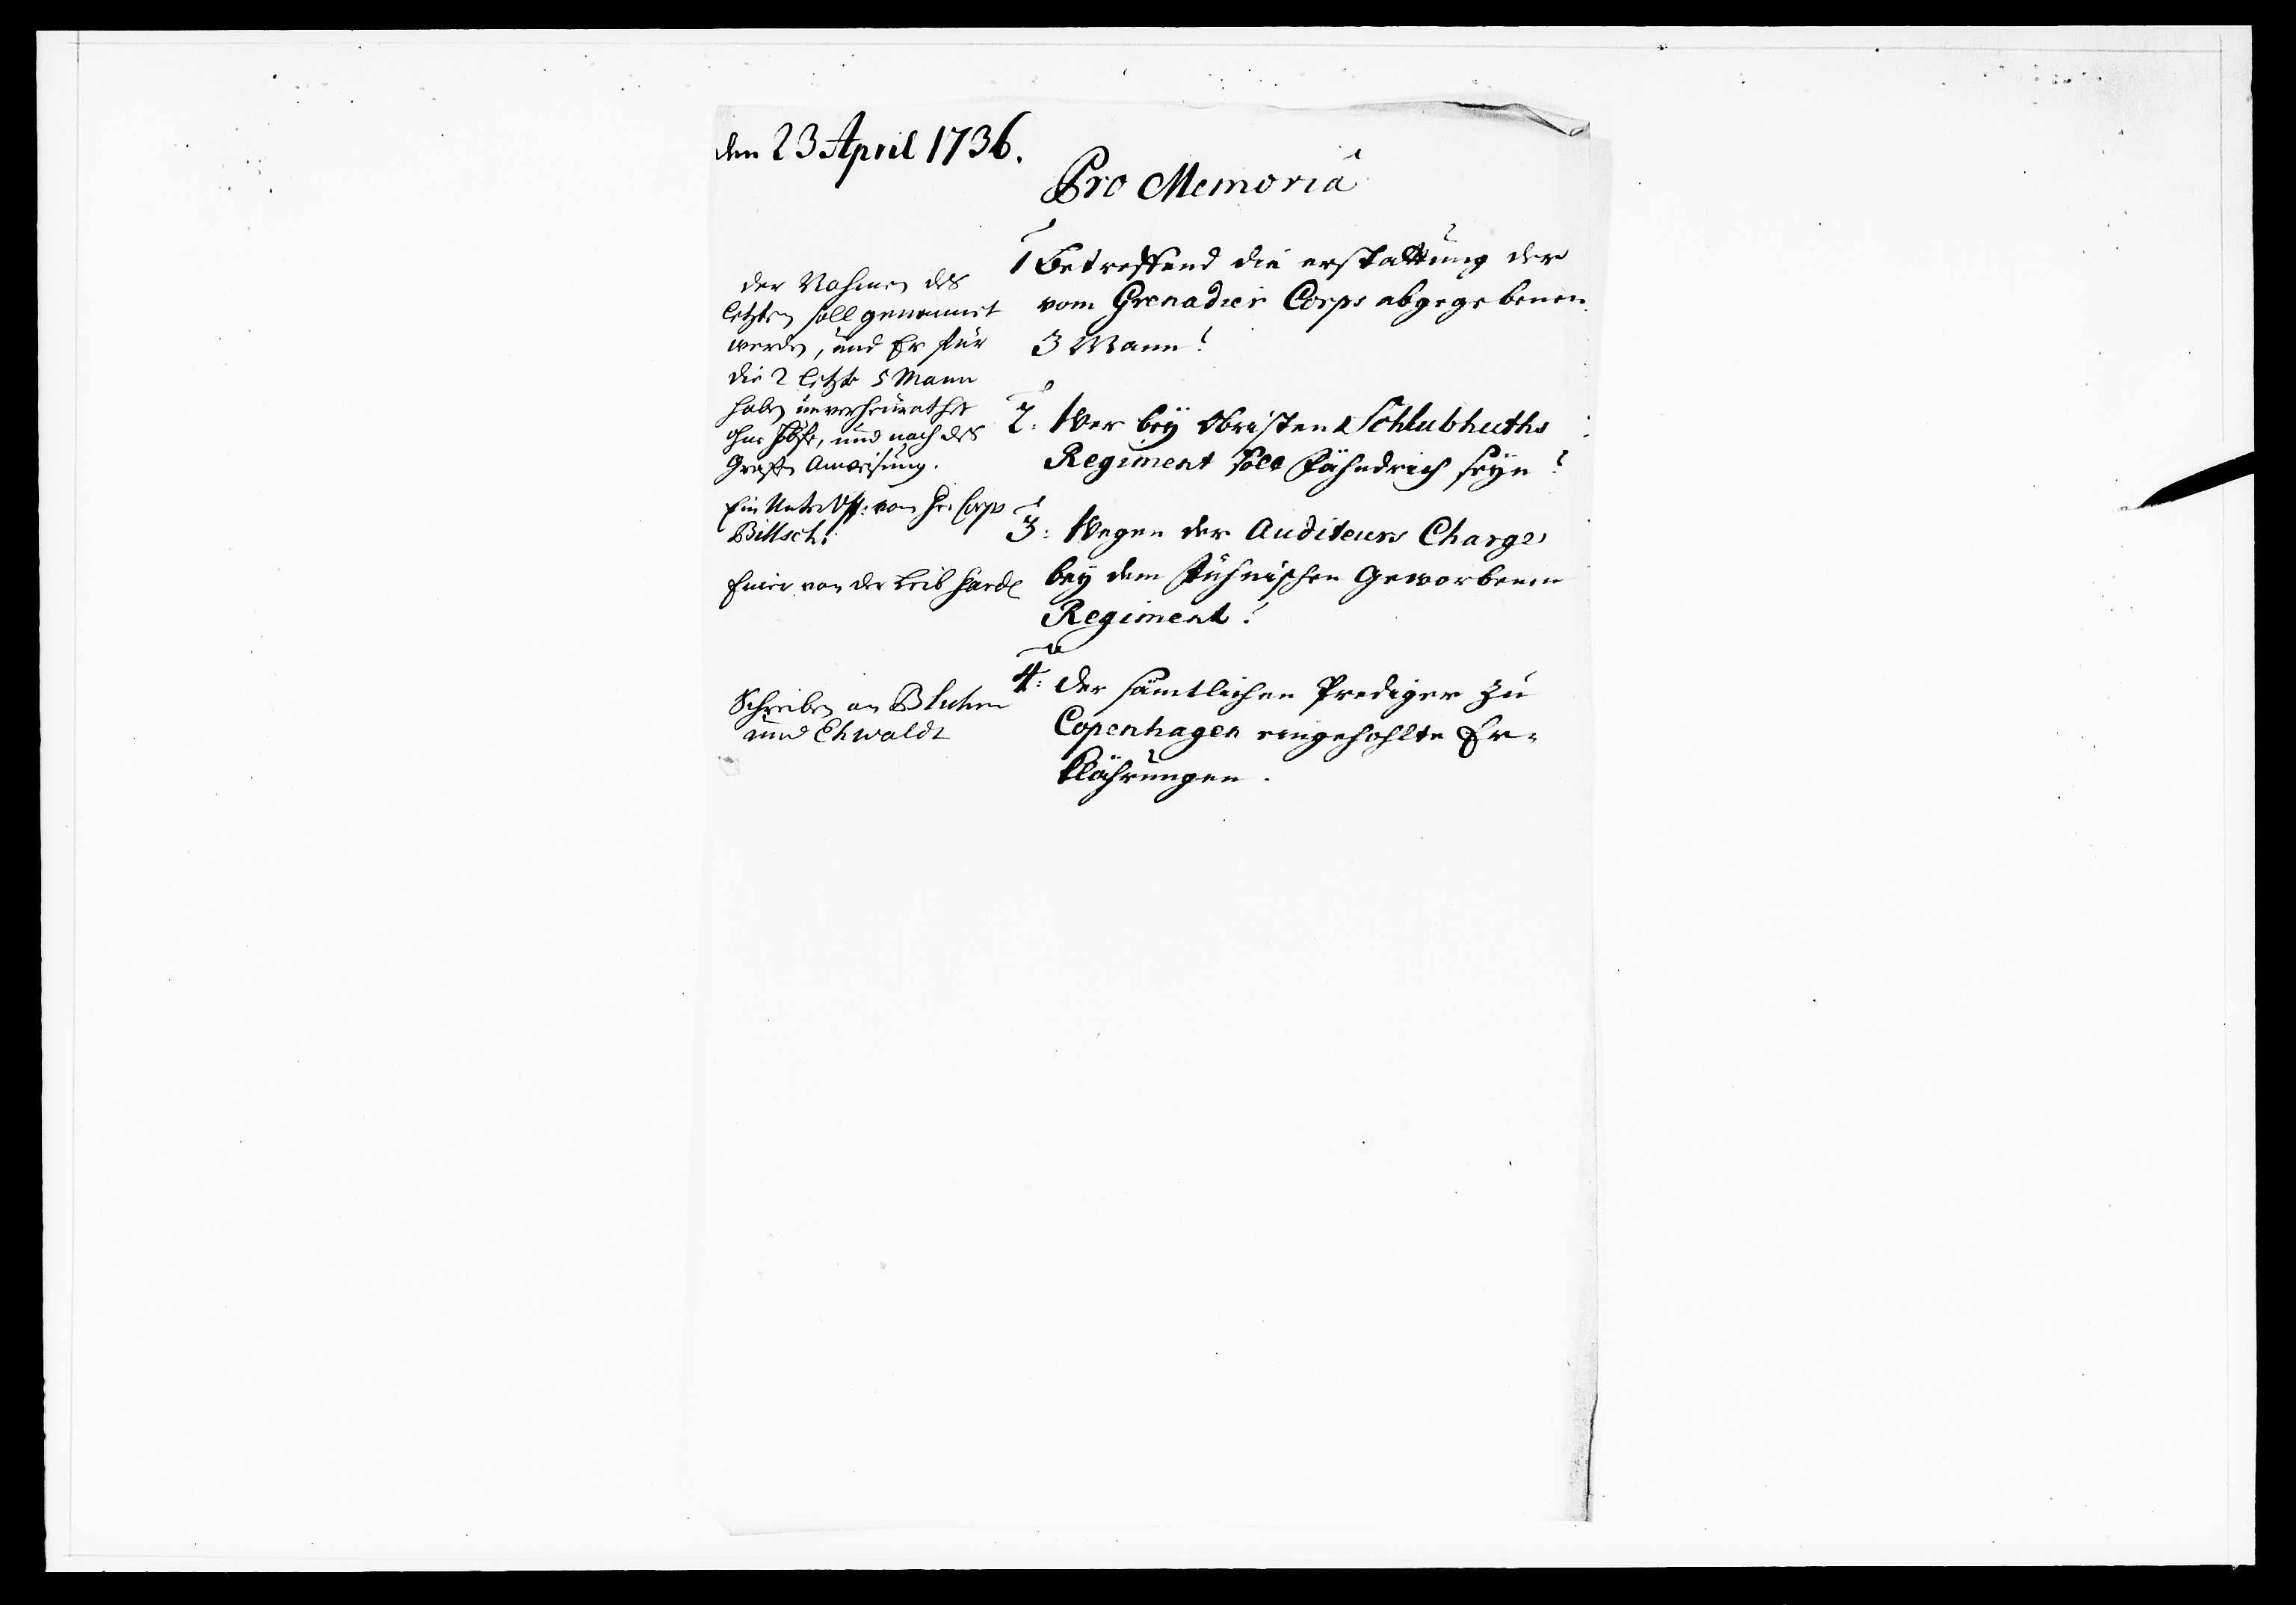 den 23 April 1736.
Pro Memoria
1 Betreffend die erstattung der
vom Grenadier Corps abgegebenen
3 Mann?
2. Wer bey Obristen Schlubhuths
Regiment soll Fähndrich seyn?
3: Wegen der Auditeurs Charge,
bey dem Fühnischen Geworbenen
Regiment?
4: der sämtlichen Prediger zu
Copenhagen eingehohlte Er-
klährungen.
der Nahmen des
letzten soll genennet
werden, und Er für
die 2 letzte 5 Mann
haben unverheurathet
ohne und nach des
Anweisung.
Ein Unter Off: vom Gr: Corps
Billsch:
Einer von der Leib Garde
Schreiben an Bluhme
und Ehwaldt